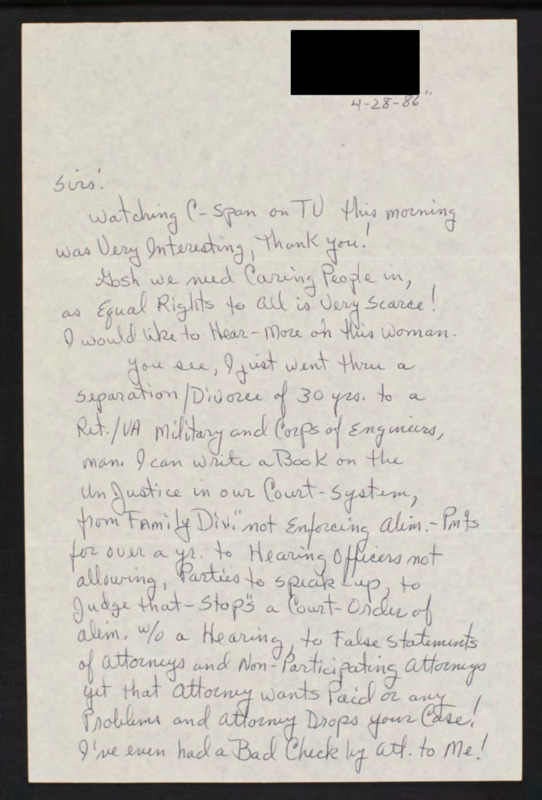 4-28-86"
Sirs!
Watching C-Span on TV this morning
was Very Interesting, Thank you!
Gosh we need Caring People in,
as Equal Rights to All is Very Scarce!
I would like to Hear-More on this Woman.
You see, I just went thru a
Separation/Divorce of 30 yrs. to a
Ret./VA Military and Corps of Engineers,
man. I can write a Book on the
UnJustice in our Court-System,
from "Family Div." not Enforcing Alim.-Pmts
for over a yr. to Hearing Officers not
allowing, Parties to speak-up, to
Judge that-Stop's a Court-Order of
alim. w/o a Hearing, to False Statements
of attorneys and Non-Participating Attorneys
yet that Attorney wants Paid or any
Problems and attorney Drops your Case!
I've even had a Bad Check by Att. to Me!